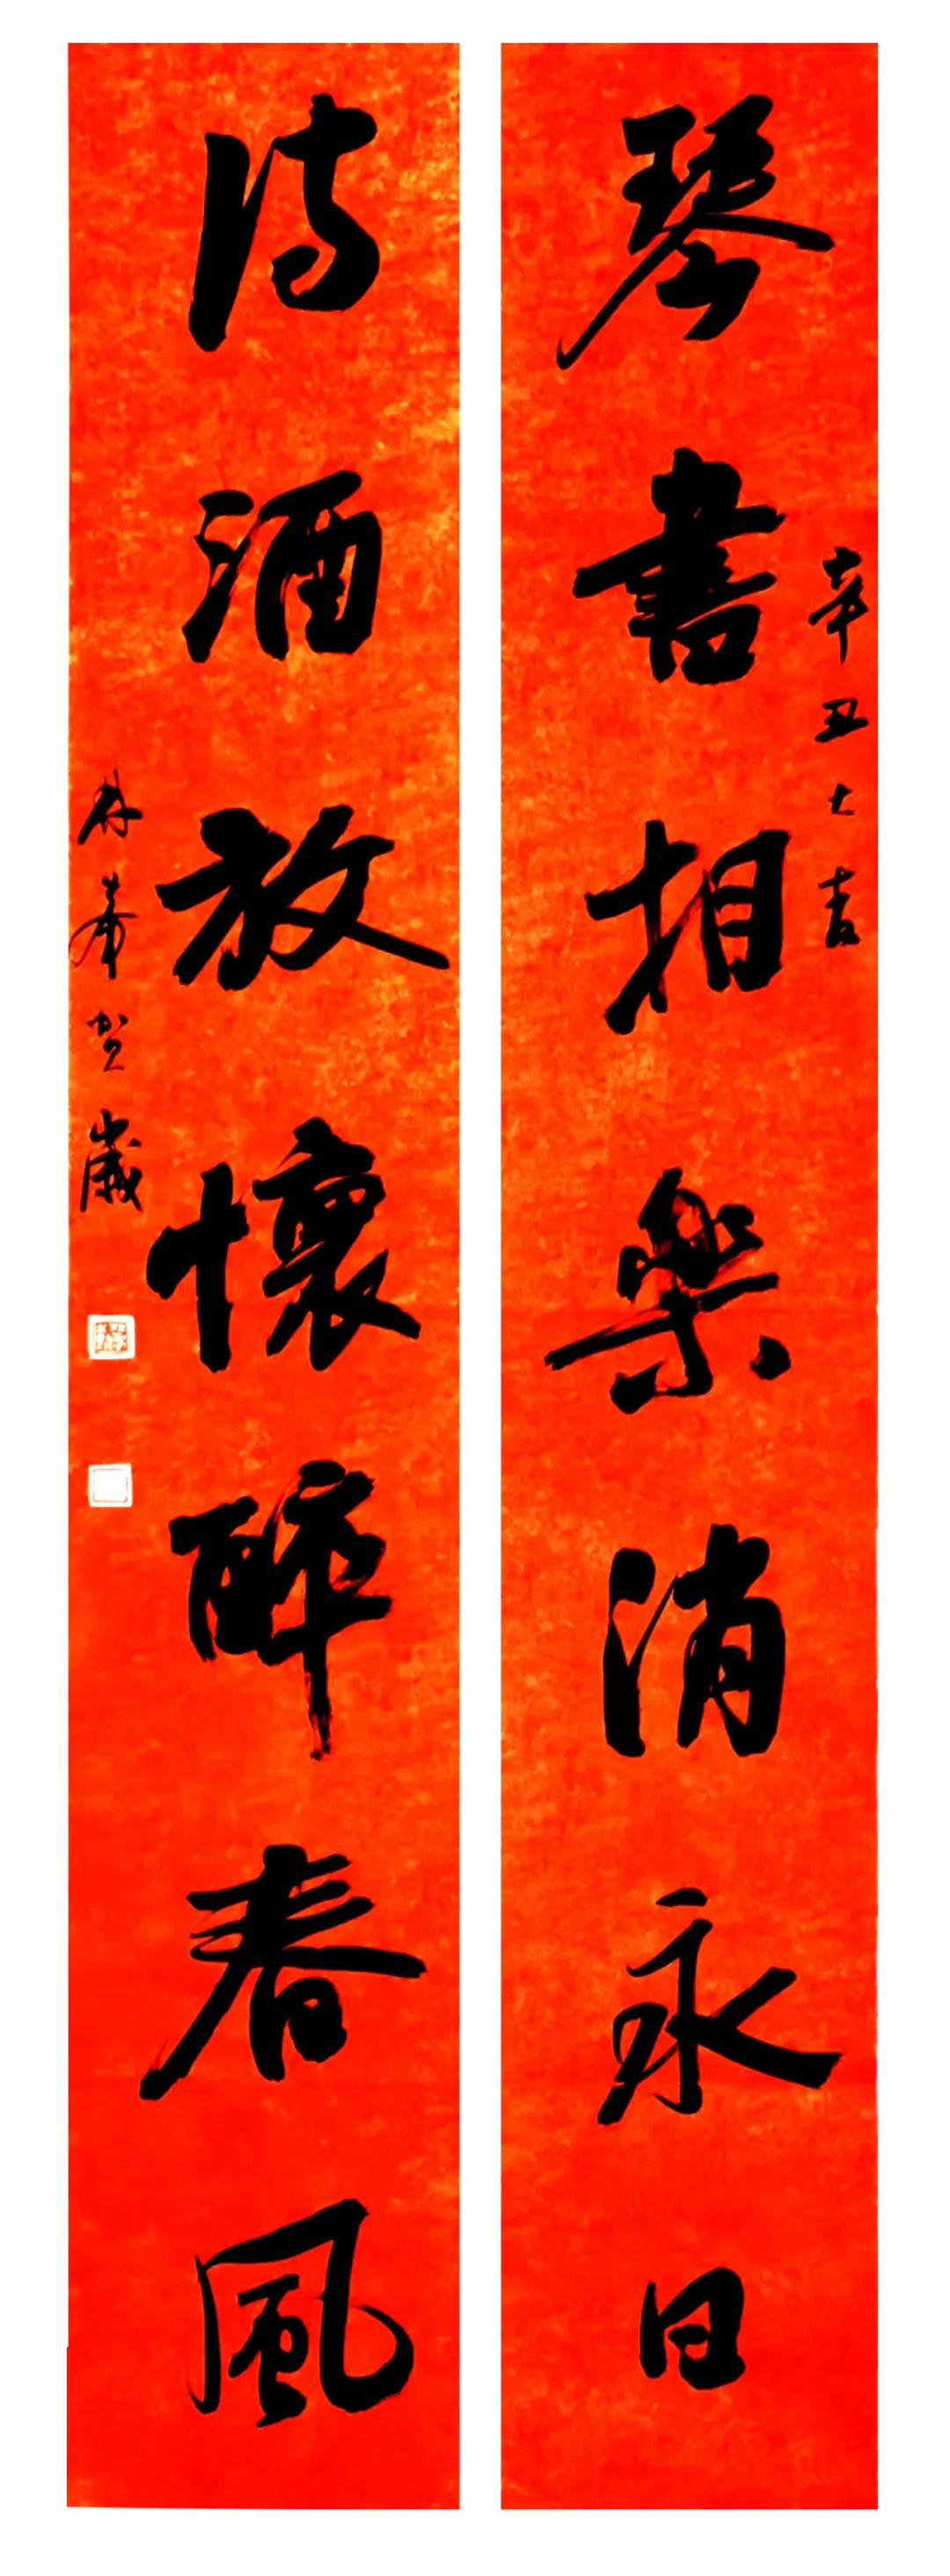 琴書相樂消永日
辛丑大吉
詩酒放懷醉春風
賀歲